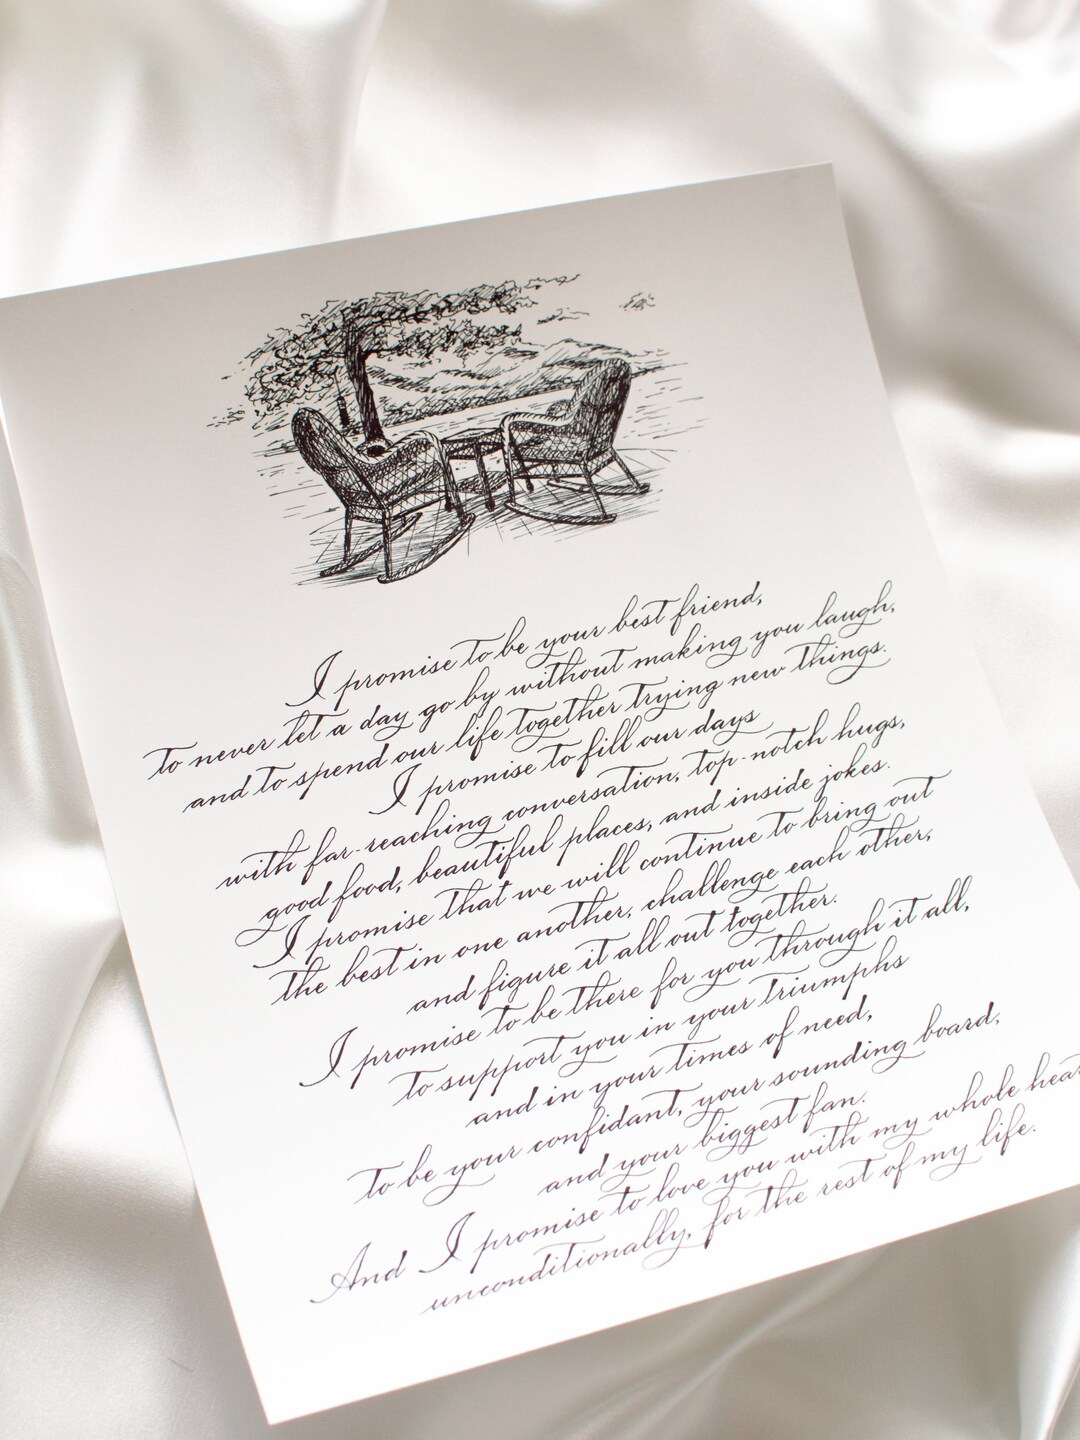 I promise to be your best friend,
to never let a day go by without making you laugh,
and to spend our life together trying new things.
I promise to fill our days
with far-reaching conversation, top-notch hugs,
good food, beautiful places, and inside jokes.
I promise that we will continue to bring out
the best in one another, challenge each other,
and figure it all out together.
I promise to be there for you through it all,
to support you in your triumphs
and in your times of need,
to be your confidant, your sounding board,
and your biggest fan.
And I promise to love you with my whole hear
unconditionally, for the rest of my life.